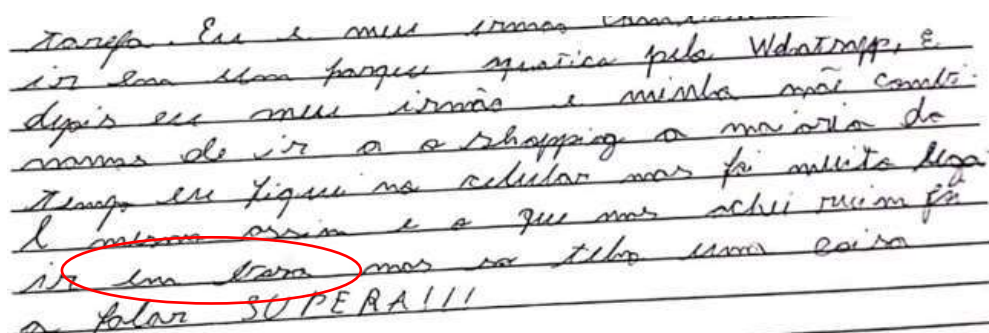 tarefa. Eu e meu irmão
ir em um parque quatico pelo Wdhatsapp, e
depis eu meu irmão e minha mãe combi-
namos de ir a o shopping a maioria do
tempo eu fiquei no celular mas foi muito lega
l mesmo assim e o que mas achei ruim foi
ir em mas so telho uma coisa
a falar SUPERA!!!